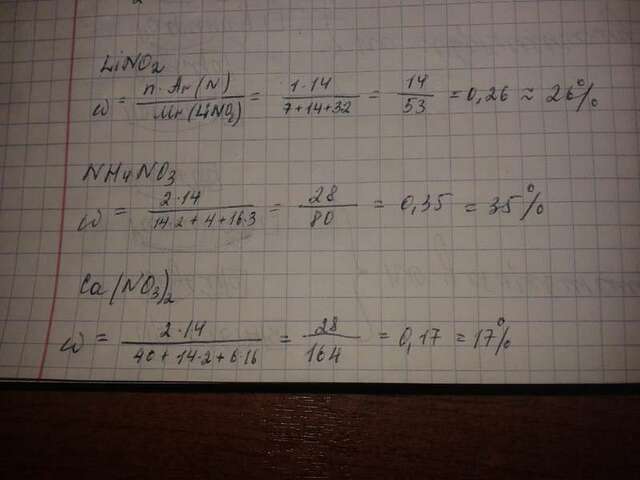 LiNO2
ω = n·Ar(N) / Mr(LiNO2) = 1·14 / 7+14+32 = 14 / 53 = 0,26 ≈ 26%
NH4NO3
ω = 2·14 / 14·2+4+16·3 = 28 / 80 = 0,35 = 35%
Ca(NO3)2
ω = 2·14 / 40+14·2+6·16 = 28 / 164 = 0,17 = 17%